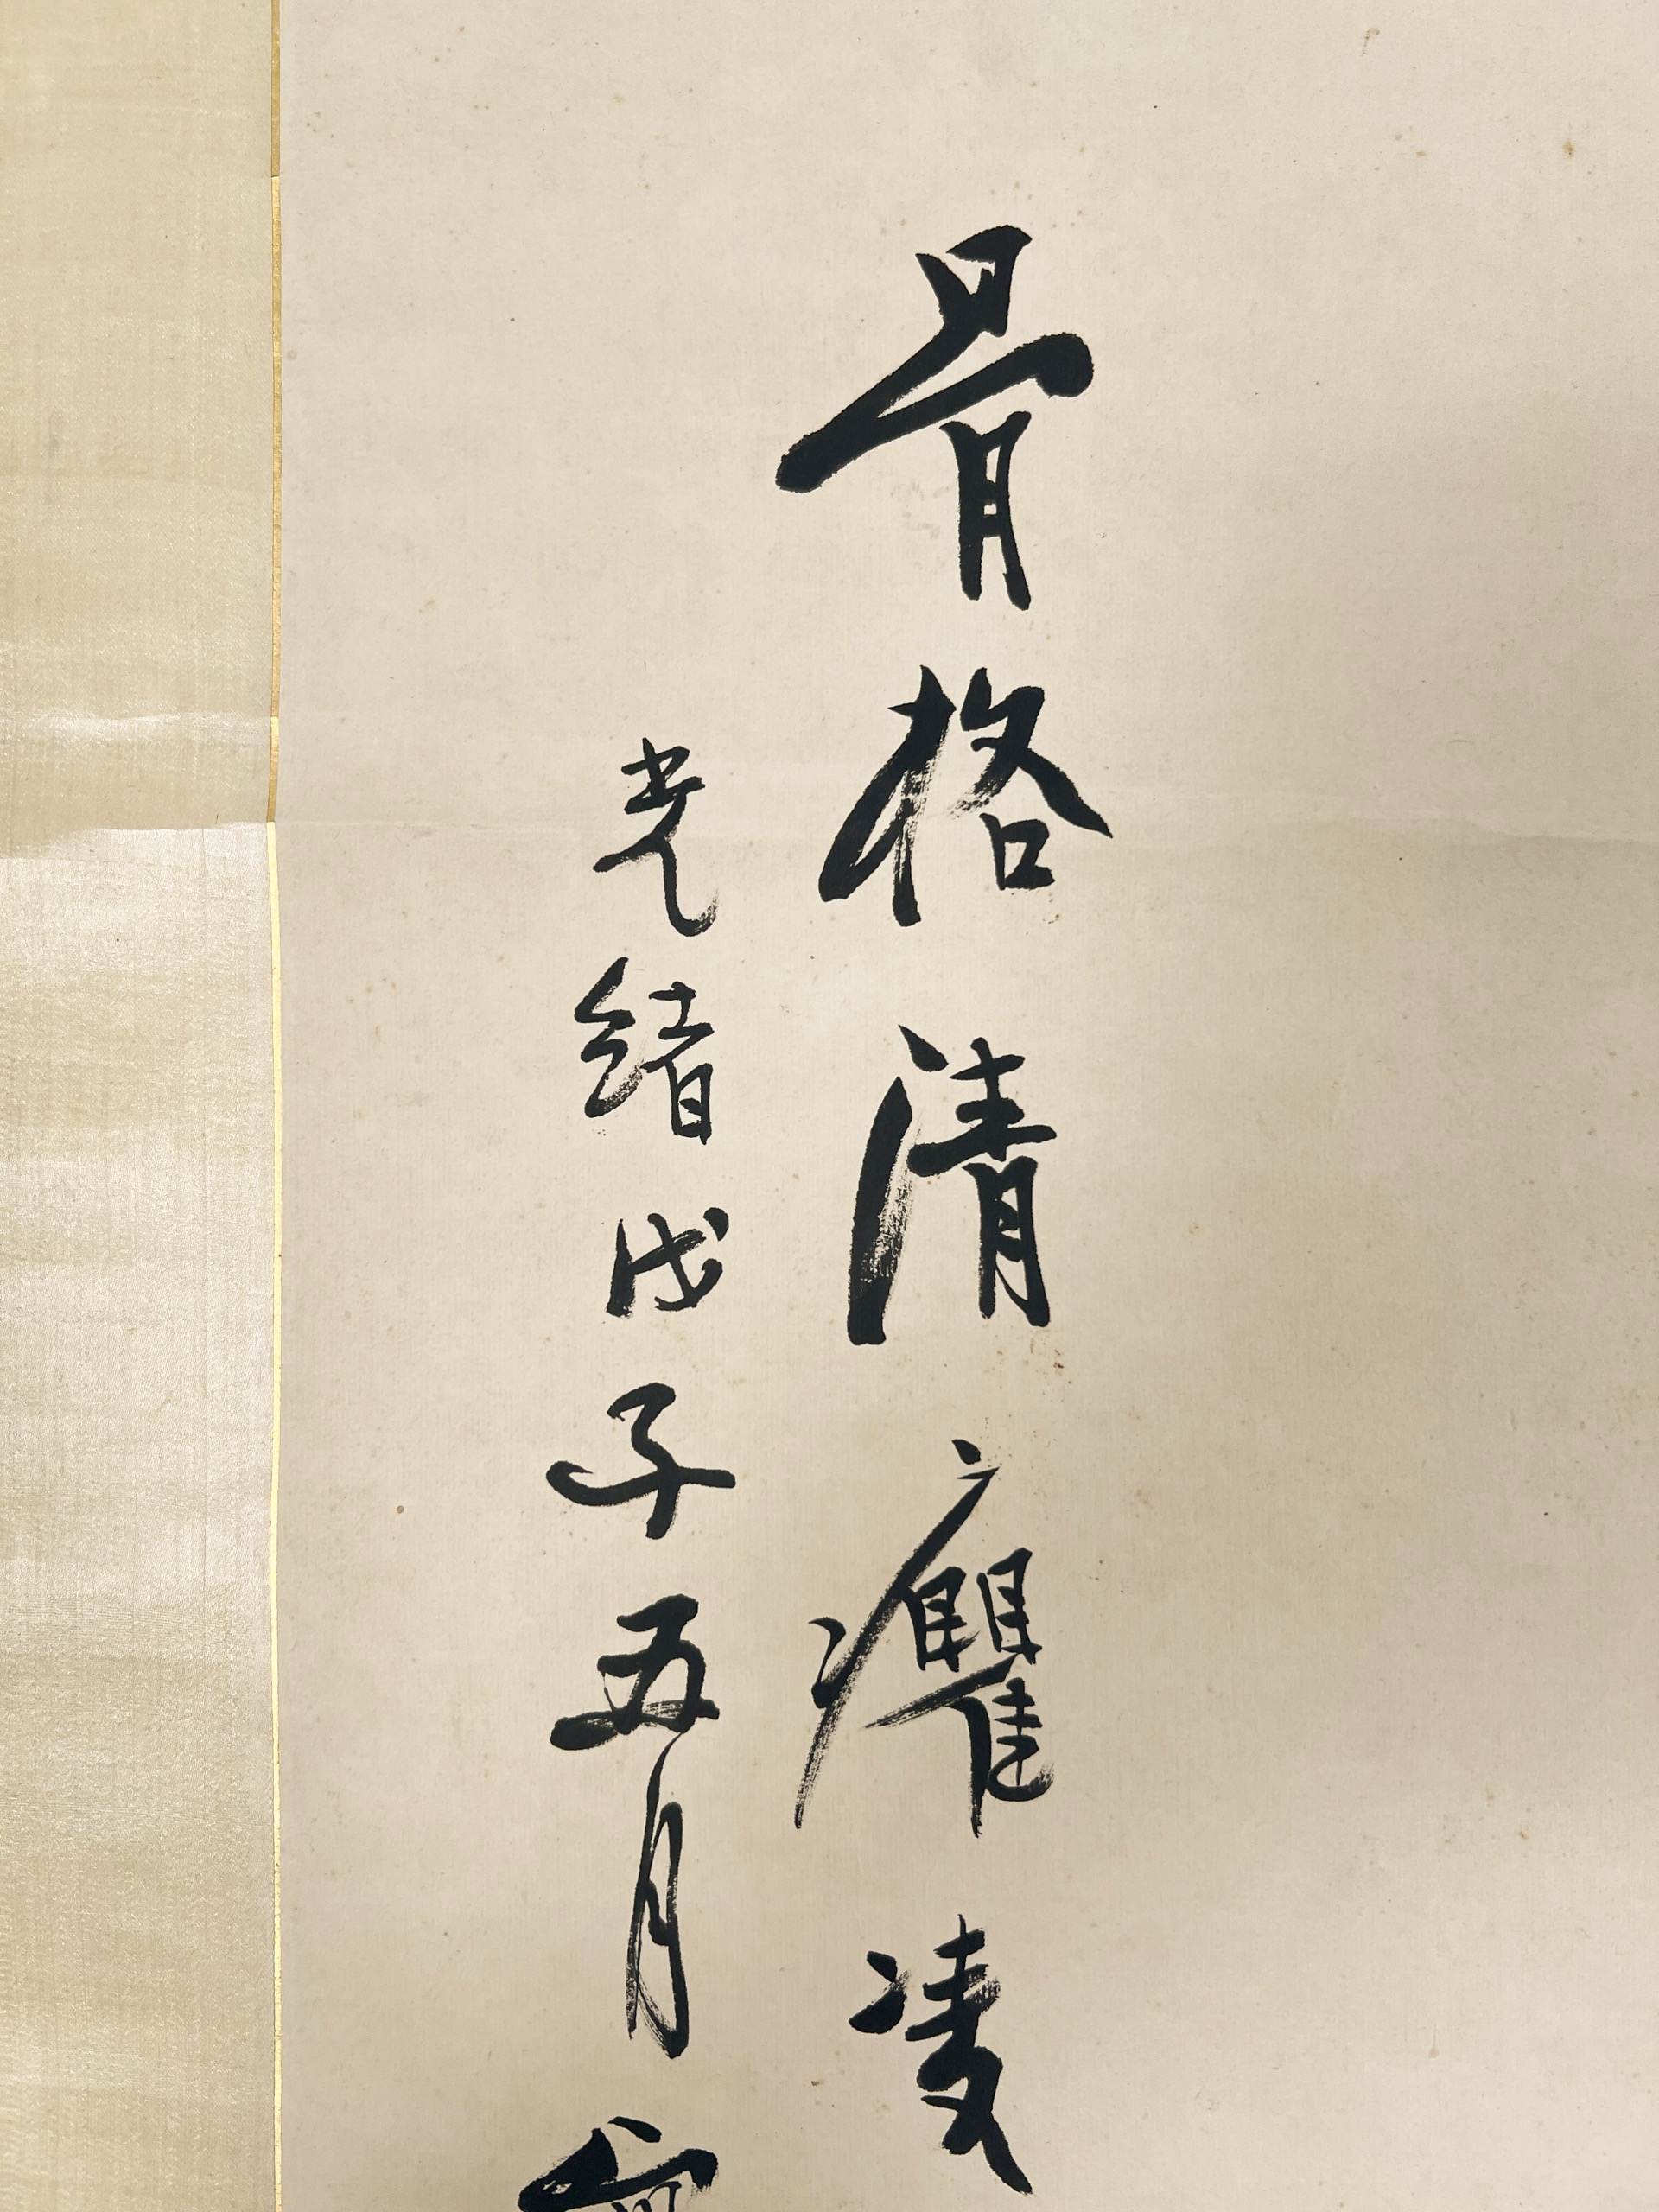 骨格清癯凌
光緒戊子五月